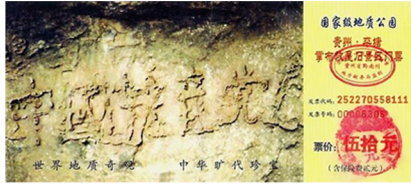 中国共产党
世界地质奇观 中华旷代珍宝
国家级地质公园
贵州·平塘
门票
发票代码: 252270558111
发票号码:
票价: 伍拾元
(含保险费贰元)